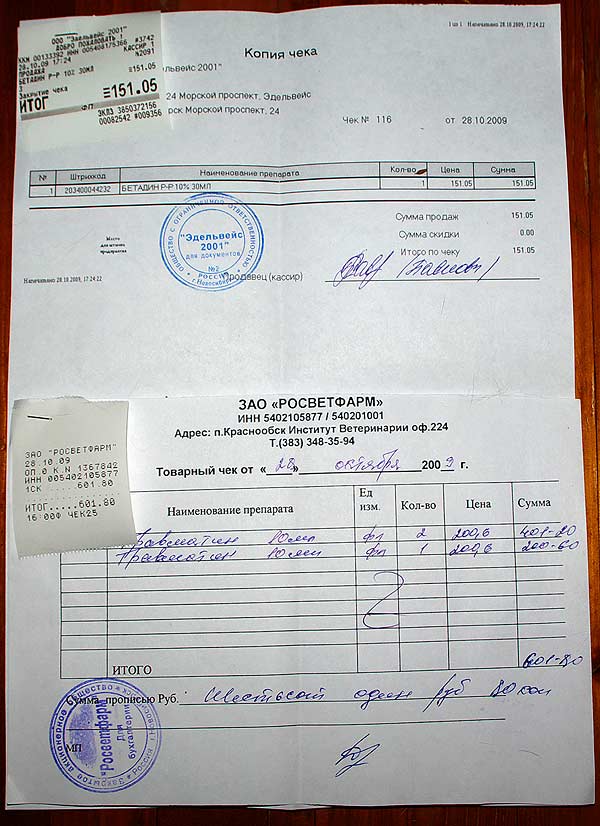 ООО "Эдельвейс 2001"
ДОБРО ПОЖАЛОВАТЬ !
ККМ 00133392 ИНН 005408175366 #3742
28.10.09 17:24 КАССИР 1
ПРОДАЖА №2091
БЕТАДИН Р-Р 10% 30МЛ
3 ≡151.05
Закрытие чека
ИТОГ ≡151.05
ФП
ЭКЛЗ 3850372156
00082542 #009356
1 из 1 Напечатано 28.10.2009, 17:24:22
Копия чека
дельвейс 2001"
24 Морской проспект, Эдельвейс
рск Морской проспект, 24
Чек № 116 от 28.10.2009
№ Штрихкод Наименование препарата Кол-во Цена Сумма
1 203400044232 БЕТАДИН Р-Р 10% 30МЛ 1 151.05 151.05
Сумма продаж 151.05
Сумма скидки 0.00
Итого по чеку 151.05
Место
для штампа
предприятия
ОБЩЕСТВО С ОГРАНИЧЕННОЙ ОТВЕТСТВЕННОСТЬЮ
"Эдельвейс
2001"
для документов
№2
РОССИЯ
г.Новосибирск
Продавец (кассир)
Напечатано 28.10.2009, 17:24:22
ЗАО «РОСВЕТФАРМ»
ИНН 5402105877 / 540201001
Адрес: п.Краснообск Институт Ветеринарии оф.224
Т.(383) 348-35-94
Товарный чек от « 28 » октября 2009 г.
ЗАО "РОСВЕТФАРМ"
28.10.09
ОП.0 К.N 1367842
ИНН 005402105877
1СК ..... 601.80
ИТОГ.....601.80
16:00Ф ЧЕК25
Наименование препарата Ед изм. Кол-во Цена Сумма
Травматин 10мл фл 2 200,6 401-20
Травматин 10мл фл 1 200,6 200-60
ИТОГО 601-80
Сумма прописью Руб. Шестьсот один руб 80 коп
МП
Закрытое акционерное общество
"Росветфарм"
Для
бухгалтерии